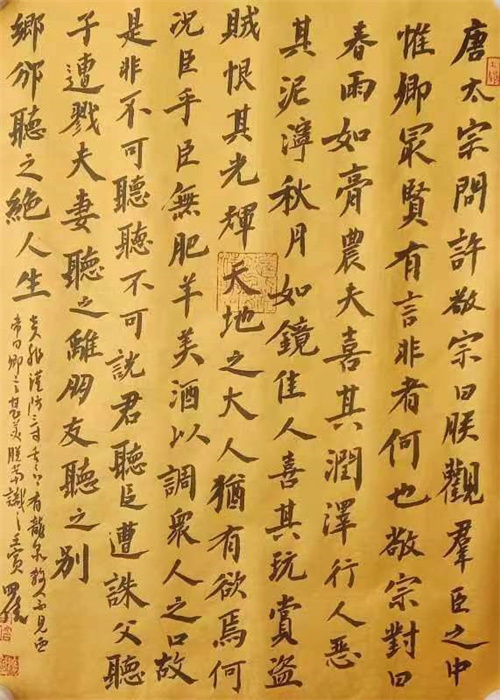 唐太宗問許敬宗曰朕觀羣臣之中
惟卿冣賢有言非者何也敬宗對曰
春雨如膏農夫喜其潤澤行人惡
其泥濘秋月如鏡佳人喜其玩賞盜
賊恨其光輝天地之大人猶有欲焉何
況臣乎臣無肥羊美酒以調衆人之口故
是非不可聽聽不可説君聽臣遭誅父聽
子遭戮夫妻聽之離朋友聽之别
鄉邻聽之絶人生
謹防三寸舌有龍泉殺人不見血
帝曰卿言甚美朕當識之壬寅